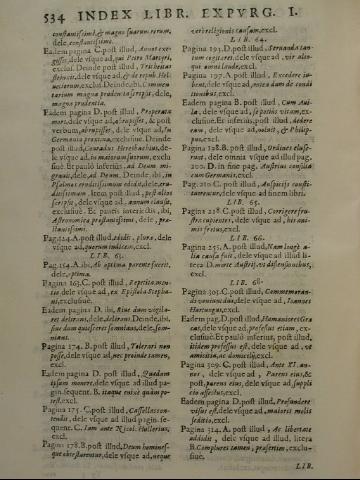 534 INDEX LIBR. EXPVRG. I.
constantissimi, & magno suarum rerum,
dele, constantissimi.
Eadem pagina C. post illud, Annot exe-
git, dele vsque ad, qui Petro Martyri,
exclus. Deinde post illud, Trithetius
dele vsque ad, & de reipub. Hel-
uetiorum, exclus. Deinde, ibi, Commen
tarium magna prudentia scripsit, dele,
magna prudentia.
Eadem pagina D. post illud, Properata
mors, dele vsque ad, abrupisset, & post
verbum, abrupisset, dele vsque ad, In
Germania proxima, exclusiuè. Deinde
post illud, Conradus Heresbachius, de-
le vsque ad, in maiorum suarum, exclu
siuè. Et paulò inferius, ad Deum mi-
grauit, dele, ad Deum. Deinde, ibi, in
Psalmos eruditissimum edidit, dele, eru-
ditissimum. Item post illud, post alios
scripsit, dele vsque ad, annum clausa,
exclusiuè. Et paucis interiectis, ibi,
Astronomica prestantissimi, dele, præ-
stantissimi.
Pag. 124. A. post illud, edidit, plura, dele
vsque ad, quorum indicem, excl.
LIB. 63.
Pag. 154. A. ibi, Ab optima parente fecerit,
dele, optima.
Pagina 163. C. post illud, Epertita men-
tis, dele vsque ad, ex Epistola Stepha-
ni, exclusiuè.
Eadem pagina D. ibi, siue dum vigila-
ret delirans, dele, delirans. Deinde, ibi,
siue dum quiesceret somnians, dele, som-
nians.
Pagina 174. B. post illud, Tolerari non
posse, dele vsque ad, nec proinde tamen,
excl.
Eadem pagina D. post illud, Quædam
ipsum monere, dele vsque ad illud pagin.
sequent. B. itaque enixè quam po-
test, excl.
Pagina 175. C. post illud, Castellas con-
tendit, dele vsque ad illud pagin. se-
quent. C. Iam ante Nicol. Hallerius,
excl.
Pagina 178. B. post illud, Deum homines-
que obtestantur, dele vsque ad, neque
veri religionis causam, excl.
LIB. 64.
Pagina 193. D. post illud, Seruanda tan-
tum regeret, dele vsque ad, vir alio-
qui animi laude, excl.
Pagina 197. A. post illud, Excedere iu-
bent, dele vsque ad, mitia dum de condi
tionibus, excl.
Eadem pagina B. post illud, Cum Aui-
la, dele vsque ad, se potius vitam, ex-
clusiuè. Et inferius, post illud, dede-
ram, dele vsque ad, voluit, & Philip-
pus, excl.
Pagina 198. B. post illud, Ordines eluse-
runt, dele omnia vsque ad illud pag.
200. D. in fine pag. Austrius consilia
cum Germanis, excl.
Pag. 210. C. post illud, Auspiciis consti-
tuerentur, dele vsque ad finem libri.
LIB. 65.
Pagina 228. C. post illud, Corrigere fru-
stra cuperent, dele vsque ad, his ani-
mis fretus, excl.
LIB. 66.
Pagina 255. A. post illud, Nam longè a-
lia causa fuit, dele vsque ad illud li-
tera D. morte Austrij, vt dissensionibus,
excl.
LIB. 68.
Pagina 301. C. post illud, Commemoran-
di veniunt duo, dele vsque ad, Ioannes
Hartungus, excl.
Eadem pag. D. post illud, Humaniores Græ
cas, dele vsque ad, professus etiam, ex-
clusiuè. Et paulò inferius, post illud,
ibidem professus est, dele vsque ad, vt
amicitiæ, ac domicilij, excl.
Pagina 309. C. post illud, Ante XI. an-
ner, dele vsque ad, Parens eius, &
post, parens eius, dele vsque ad, suppli
cio affecitur, excl.
Eadem pagina D. post illud, Profundere
visus est, dele vsque ad, maioris molis
seditio, excl.
Pagina 324. A. post illud, Ac libertate
addidit, dele vsque ad illud, litera
B. Complures tamen, præsertim, exclu-
siuè.
LIB.